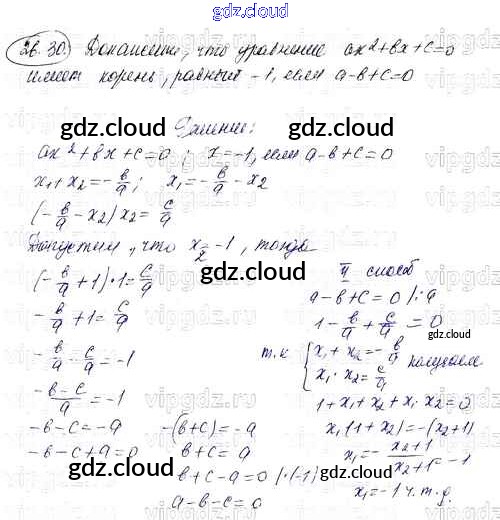 gdz.cloud
26.30. Докажем, что уравнение ax²+bx+c=0
имеет корень, равный -1, если a-b+c=0
Решение:
gdz.cloud gdz.cloud
ax²+bx+c=0; x=-1, если a-b+c=0
x₁+x₂=-b/a; x₁=-b/a-x₂
(-b/a-x₂)x₂=c/a
Допустим, что x₂=-1, тогда
(-b/a+1)·1=c/a
-b/a+1=c/a
-b/a-c/a=-1
(-b-c)/a=-1
-b-c=-a
-b-c+a=0
-(b+c)=-a
b+c=a
b+c-a=0 |·(-1)
a-b-c=0
II способ
a-b+c=0 |:a
1-b/a+c/a=0
т.к { x₁+x₂=-b/a
x₁·x₂=c/a получаем
1+x₁+x₂+x₁·x₂=0
x₁(1+x₂)=-(x₂+1)
x₁=-(x₂+1)/(x₂+1)=-1
x₁=-1 ч.т.д.
gdz.cloud gdz.cloud
gdz.cloud gdz.cloud